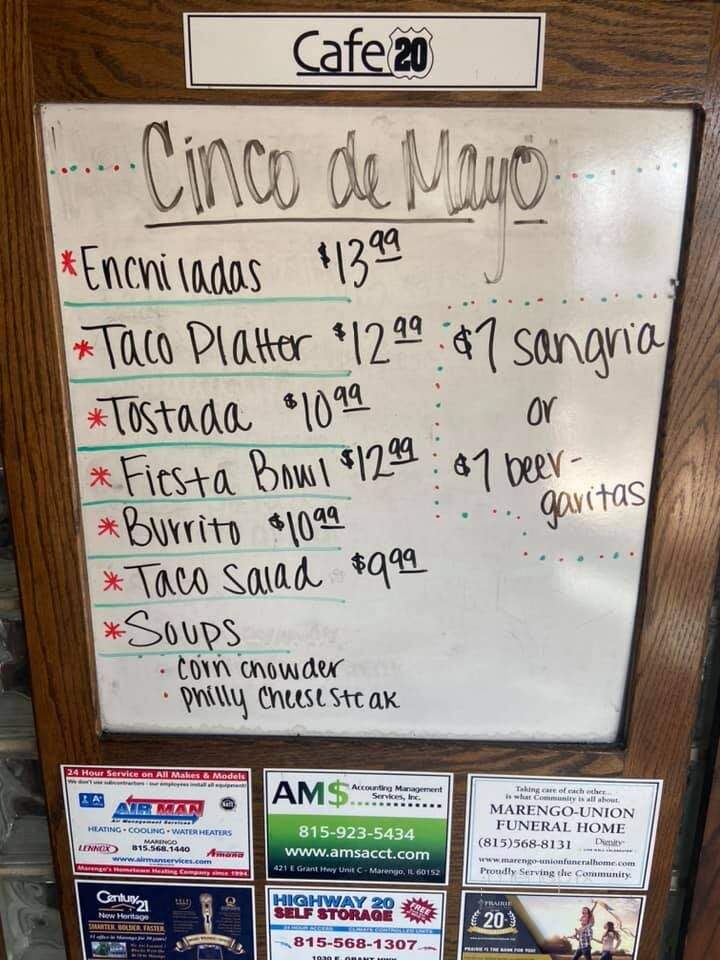 Cafe 20
Cinco de Mayo
*Enchiladas $13.99
*Taco Platter $12.99
*Tostada $10.99
*Fiesta Bowl $12.99
*Burrito $10.99
*Taco Salad $9.99
*Soups
• corn chowder
• philly cheese steak
$7 sangria
or
$7 beer-
garitas
24 Hour Service on All Makes & Models
We don't use subcontractors - our employees install all equipment!
AIR MAN
Air Management Services
HEATING • COOLING • WATER HEATERS
LENNOX
MARENGO
815.568.1440
Amana
www.airmanservices.com
Marengo's Hometown Heating Company since 1994
AM$ Accounting Management
Services, Inc.
815-923-5434
www.amsacct.com
421 E Grant Hwy Unit C - Marengo, IL 60152
Taking care of each other...
is what Community is all about.
MARENGO-UNION
FUNERAL HOME
(815)568-8131
Dignity
www.marengo-unionfuneralhome.com
Proudly Serving the Community.
Century 21
New Heritage
SMARTER. BOLDER. FASTER.
HIGHWAY 20
SELF STORAGE
24 HOUR ACCESS CLIMATE CONTROLLED UNITS
815-568-1307
1030 E. GRANT HWY
PRAIRIE
20
PRAIRIE IS THE BANK FOR YOU!